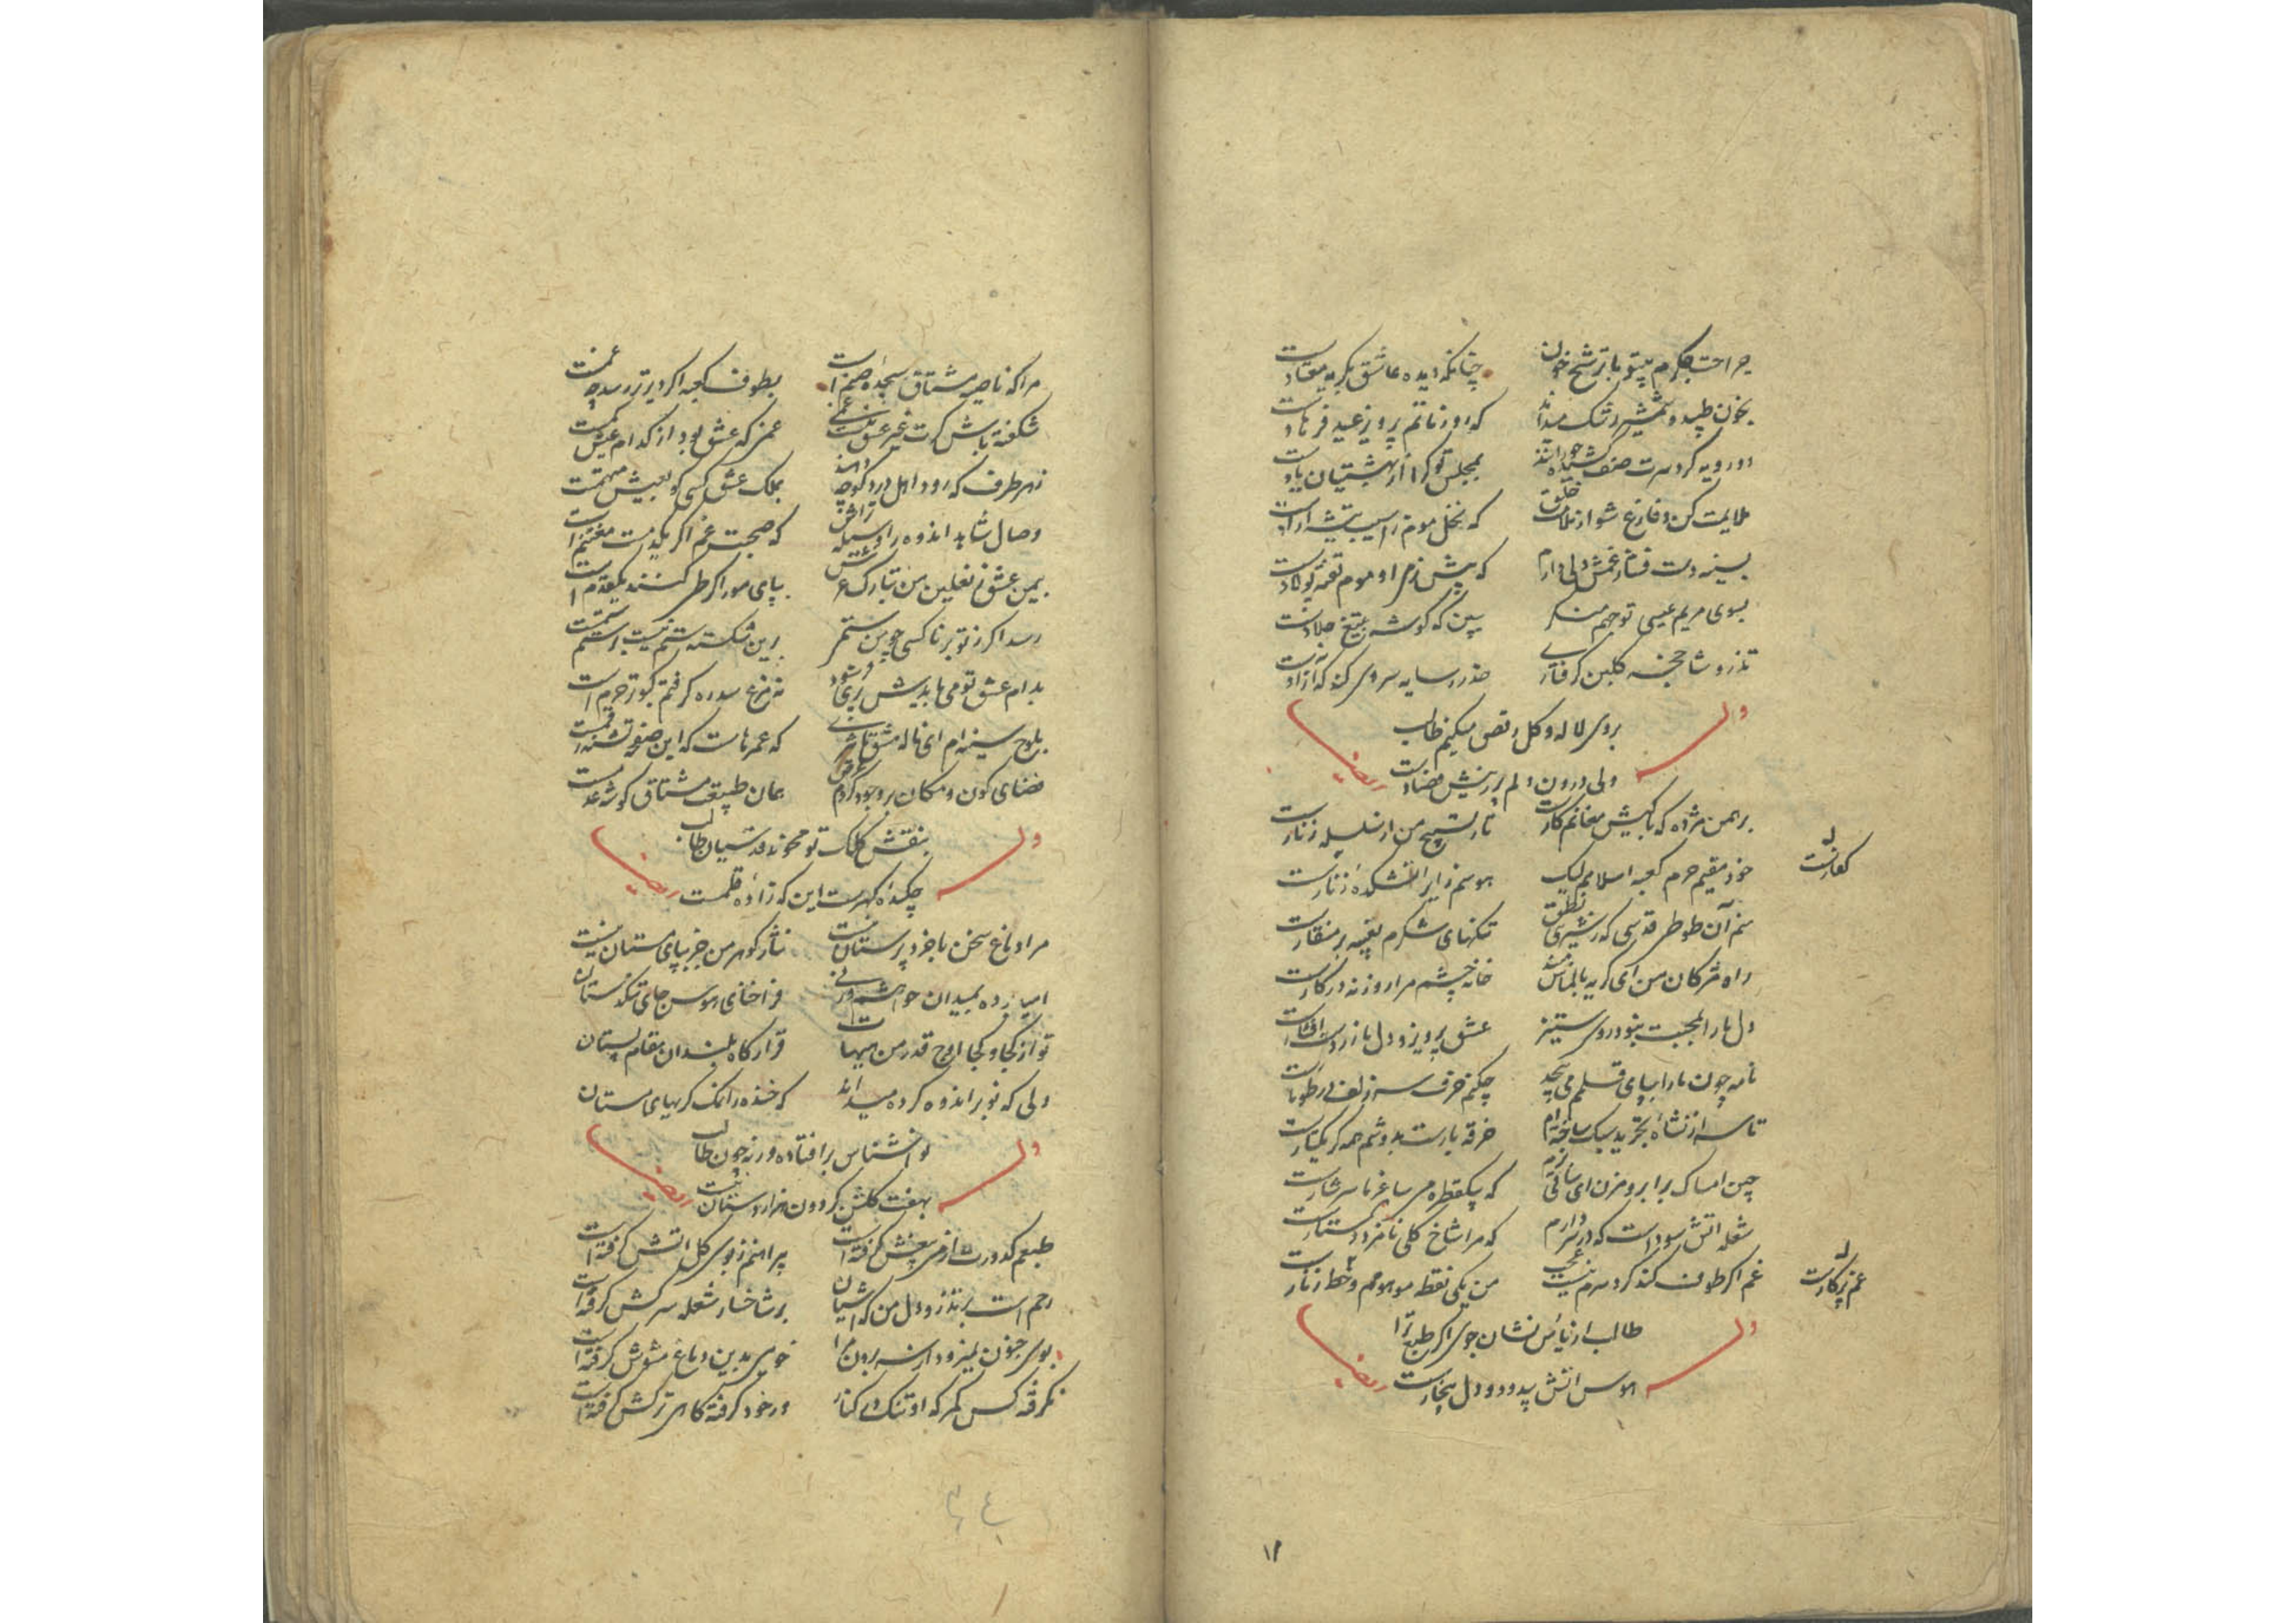 جراحت جگرم بیتو با ترشح خون چنانکه دیده عاشق بکریه معتادست
بخون طپید و شمشیر رشک میداند که روز ماتم پرویز عید فرهادست
دو رویه کرد سرت صف کشیده حورانند بمجلس تو کرا از بهشتیان یادست
ملایمت کن و فارغ شو از ملامت خلق که نخل موم ز آسیب تیشه آزادست
بسینه دست فشار غمش دلی دارم که پیش نرمی او موم تفته پولادست
بسوی مریم عیسی توجهم منکر ببین که کوشه بتیغ جلادست
تذرو شاخچه کلبن کرفتاری حذر ز سایه سروی کند که آزادست
بروی لاله و کل رقص میکنم طالب
ولی درون دلم پر ز نیش فصادست
وله ایضا
برهمن مژده که با کیش مغانم کارست تار تسبیح من از سلسله زنارست
کفارست
خود مقیم حرم کعبه اسلامم لیک هوسم زایر آتشکده زنارست
منم آن طوطی قدسی که ز شیرینی نطق تنکهای شکرم تعبیه بر منقارست
راه مژکان من ای کریه بالماس مبند خانه چشم مرا روزنه در کارست
دل ما را بمحبت نبود روی ستیز عشق پرویز و دل ما زر دست افشارست
نامه چون مار بپای قلمم می پیچد چکنم حرف سر زلف تو طومارست
تا سر از نشاه تجرید سبک ساخته ام خرقه بارست بدوشم همه کر یکتارست
چین امساک بر ابرو مزن ای ساقی بزم که بیکقطره می ساغر ما سرشارست
شعله آتش سوداست که در سر دارم که مرا شاخ کلی نامزد دستارست
غم اکر طوف کند کرد سرم نیست عجب من یکی نقطه موهومم و خط زنارست
غم پرکارست
طالب از نیاس نشان جوی اکر طبع ترا
هوس آتش بیدود و دل بیخارست
وله ایضا
۱۲
مرا که ناصیه مشتاق سجده صنم است بطوف کعبه اکر دیرتر رسد چه غمست
شکفته باش کرت غیر عشق نیست غمی غمی که عشق بود از کدام عیش کمست
ز هر طرف که رود اهل درد کوچه دهند بملک عشق کسی کو بعیش متهمست
وصال شاهد اندوه را وسیله تراش که صحبت غم اکر یکدمست مغتنم است
بیمن عشق ز نعلین من تبارک عرش بپای مور اکر طی کنند یکقدم است
رسد اکر ز تو بر ناکسی چو من ستمی برین شکسته ستم نیست بر ستم ستمست
بدام عشق تو می بایدش پری فرسود نه مرغ سدره کرفتم کبوتر حرم است
بلوح سینه ام ای ناله مشق ناخن کن که عمرهاست که این صفحه تشنه رقمست
فضای کون و مکان بر وجود کردم عرض همان طبیعت مشتاق کوشه عدمست
بنقش کلک تو محوند قدسیان طالب
چکیده کهرست این که زاده قلمست
وله ایضا
مرا دماغ سخن با خرد پرستان نیست نثار کوهر من جز بپای مستان نیست
امید رده بمیدان خواهشم ورنی فراخنای هوس جای تنکدستان
تو از کجا و کجا اوج قدر من هیهات قرارکاه بلندان مقام پستان
دلی که نوبر اندوه کرده میداند که خنده را نمک کریهای مستان
نواشناس بر افتاده ورنه چون طالب
بهفت کلشن کردون هزار دستان نیست
وله ایضا
طبعم کدورت از می بیغش کرفته است پیراهنم ز بوی کل آتش کرفته است
رحم است بر تذرو دل من که آشیان بر شاخسار شعله سرکش کرفته است
بوی جنون نمیرود از سر برون مرا خو می بدین دماغ مشوش کرفته است
نکرفته کس کمر که او تنک در کنار در خود کرفته کاهی ترکش کرفته است